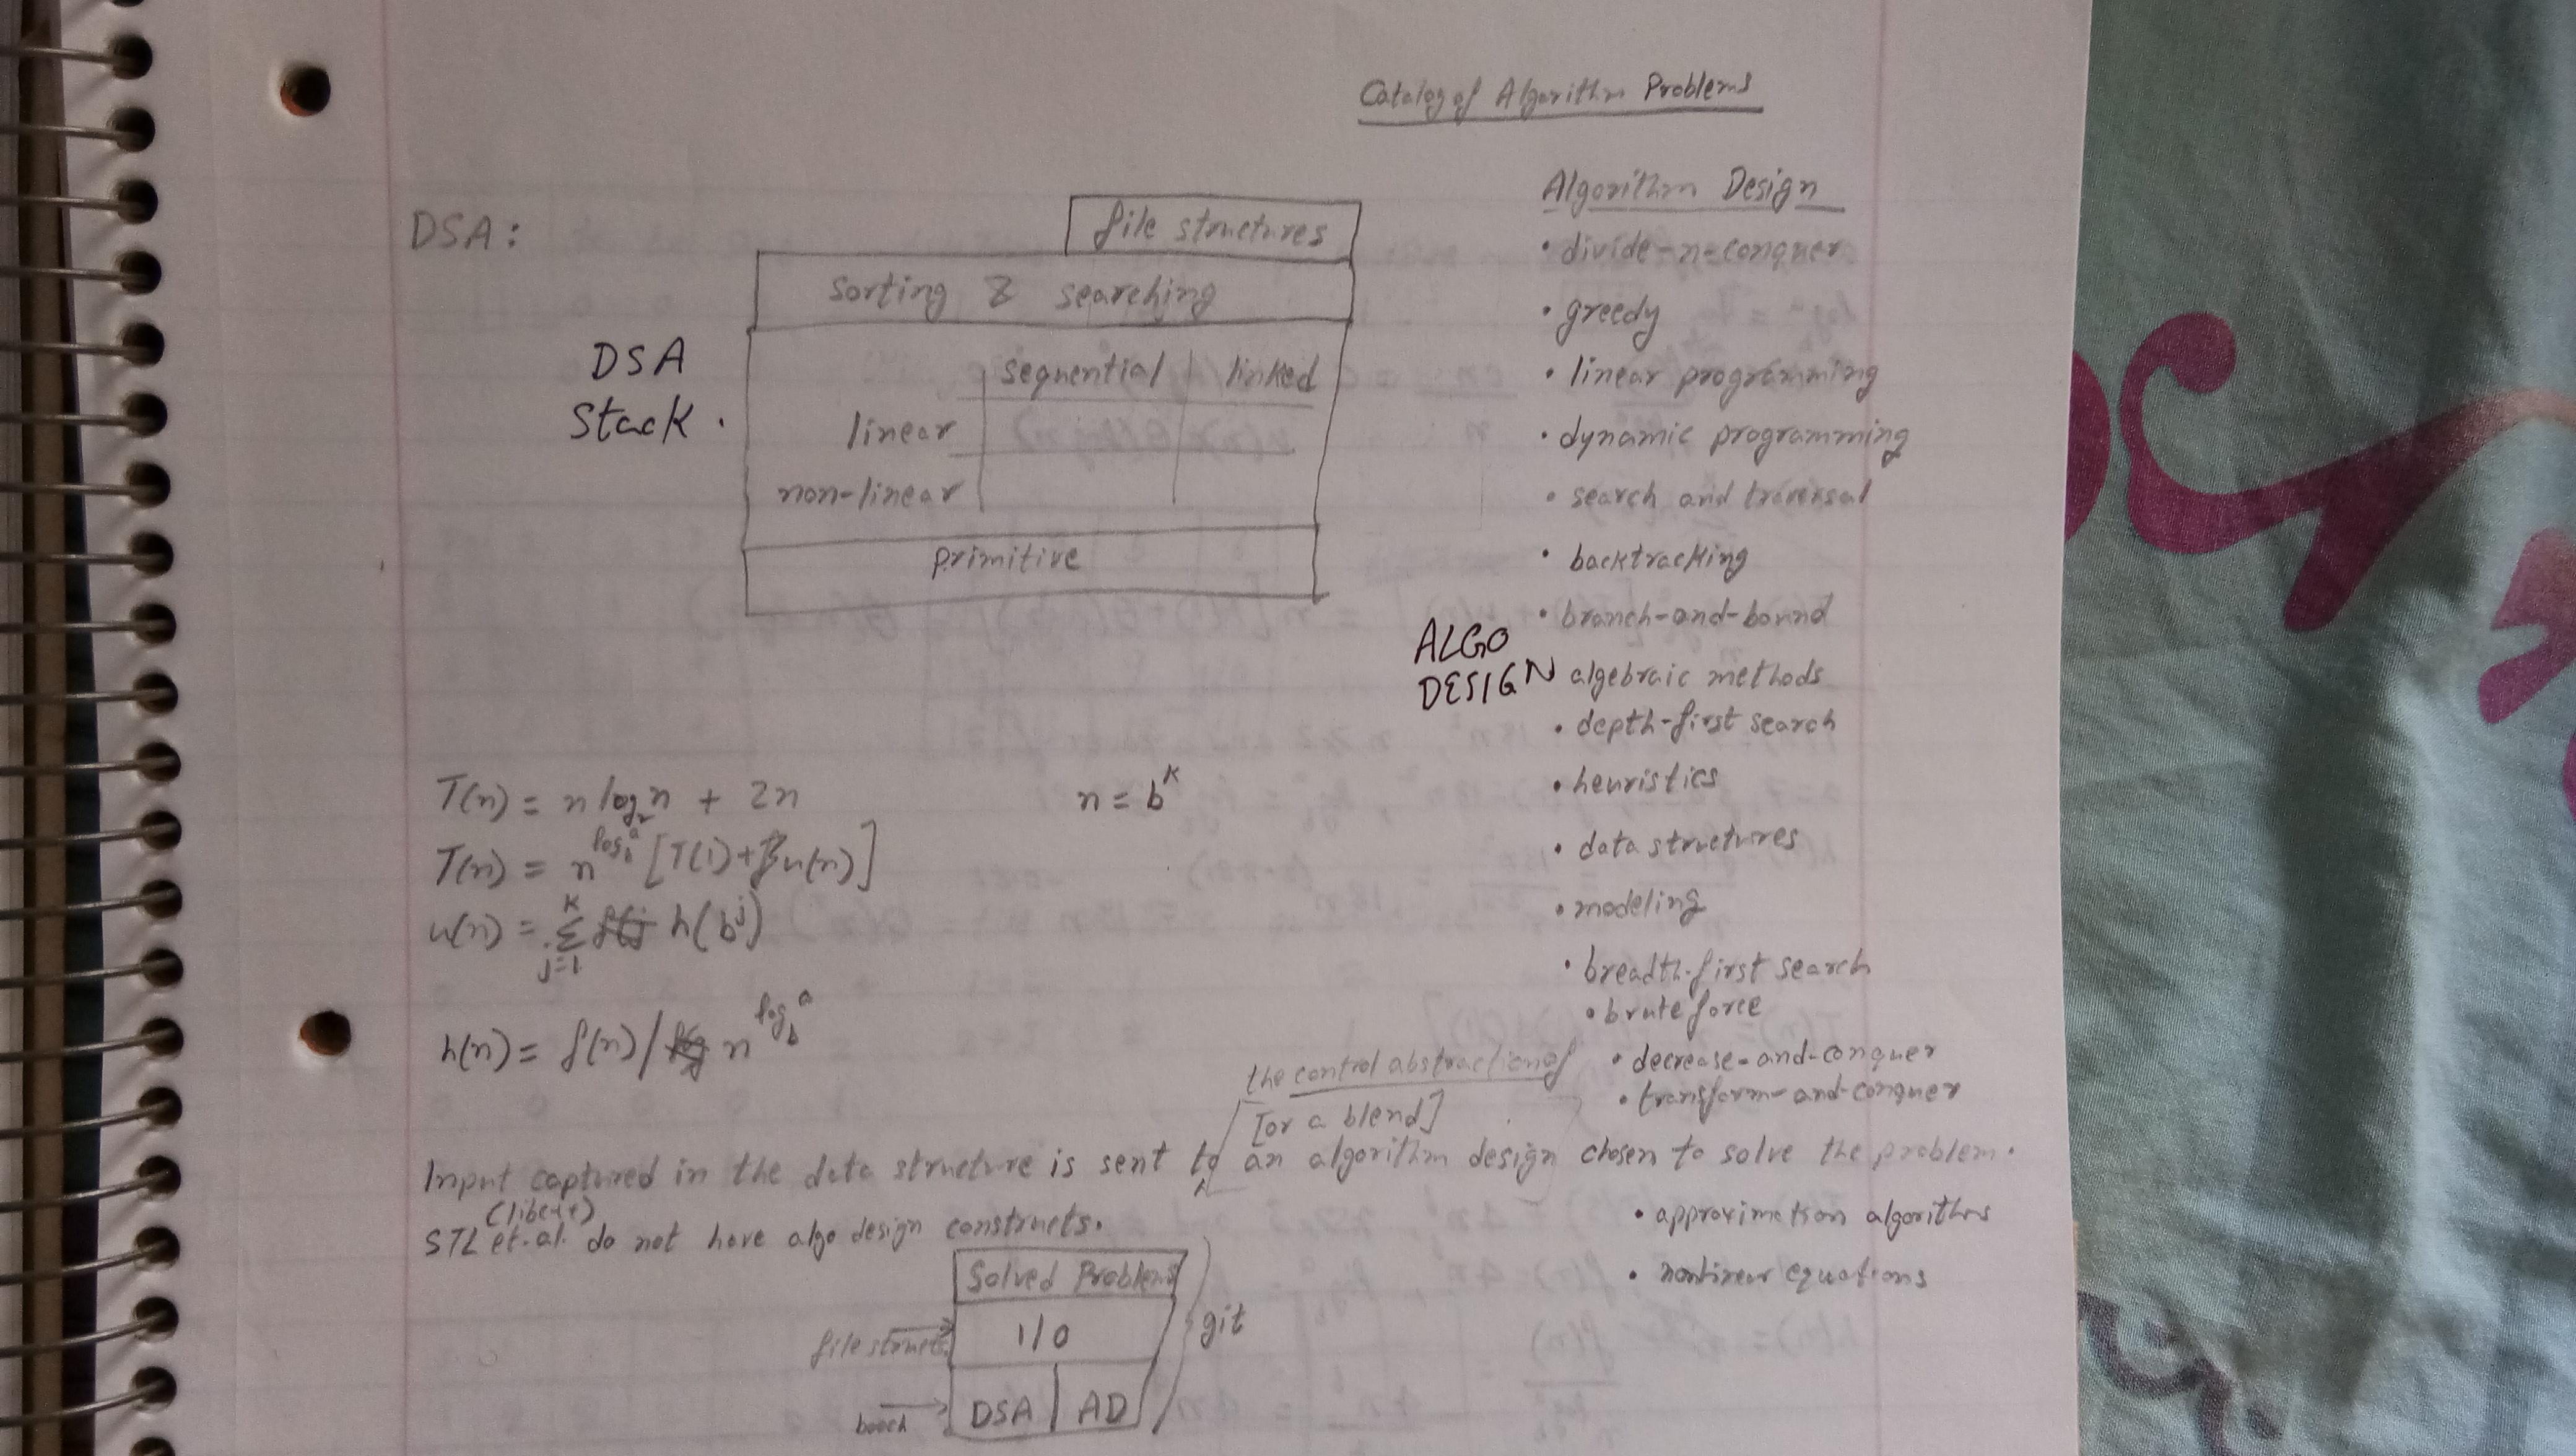 Catalog of Algorithm Problems
DSA:
file structures
sorting & searching
sequential | linked
linear
non-linear
primitive
DSA
Stack.
Algorithm Design
• divide-n-conquer
• greedy
• linear programming
• dynamic programming
• search and traversal
• backtracking
• branch-and-bound
ALGO
DESIGN
algebraic methods
• depth-first search
• heuristics
• data structures
• modeling
• breadth-first search
• brute force
• decrease-and-conquer
• transform-and-conquer
T(n) = n log₂n + 2n
n = b^k
T(n) = n^(log_b a) [T(1) + u(n)]
u(n) = Σ_(j=1)^k h(b^j)
h(n) = f(n) / n^(log_b a)
the control abstraction of
[or a blend]
Input captured in the data structure is sent to an algorithm design chosen to solve the problem.
(libc++)
STL et. al. do not have algo design constructs.
• approximation algorithms
• nonlinear equations
Solved Problems
file structs
I/O
git
booch
DSA | AD